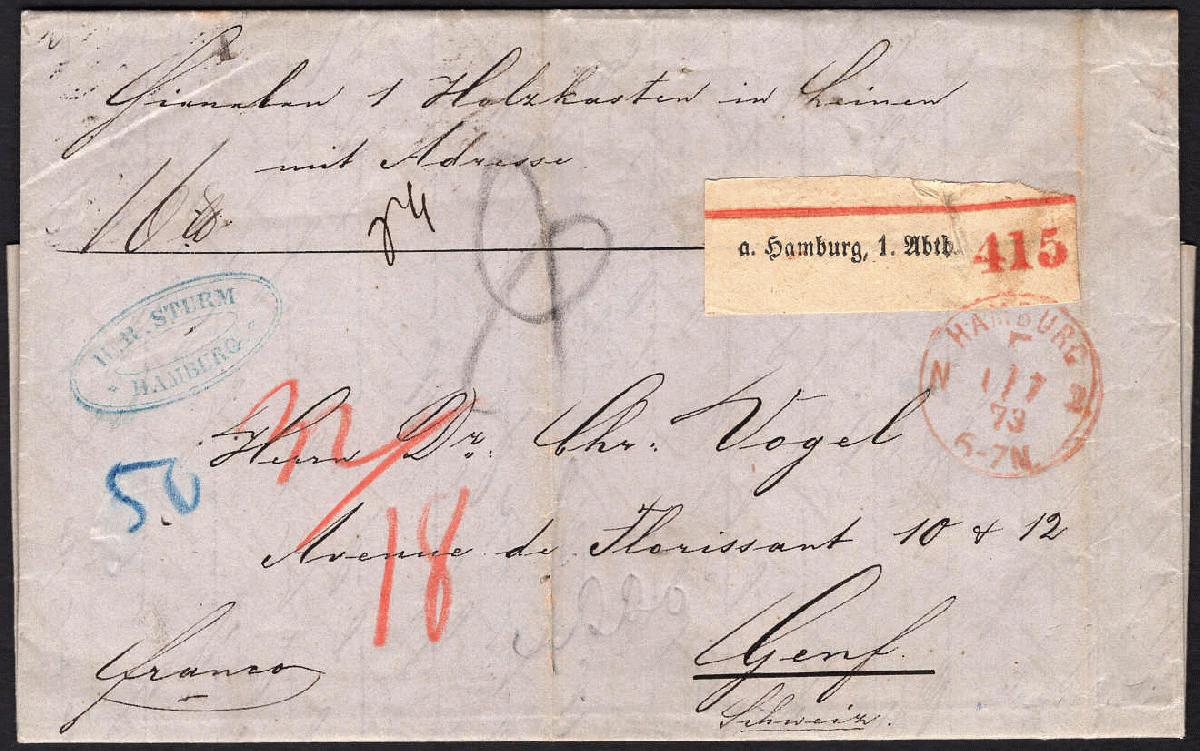 Hieneben 1 Holzkasten in Leinen
mit Adresse
16
a. Hamburg, 1. Abth. 415
STURM
* HAMBURG *
HAMBURG
N 2
1/7
73
6-7N.
Herrn Dr. Chr: Vogel
50
18
Avenue de Florissant 10 & 12
220
franco
Genf.
Schweiz.